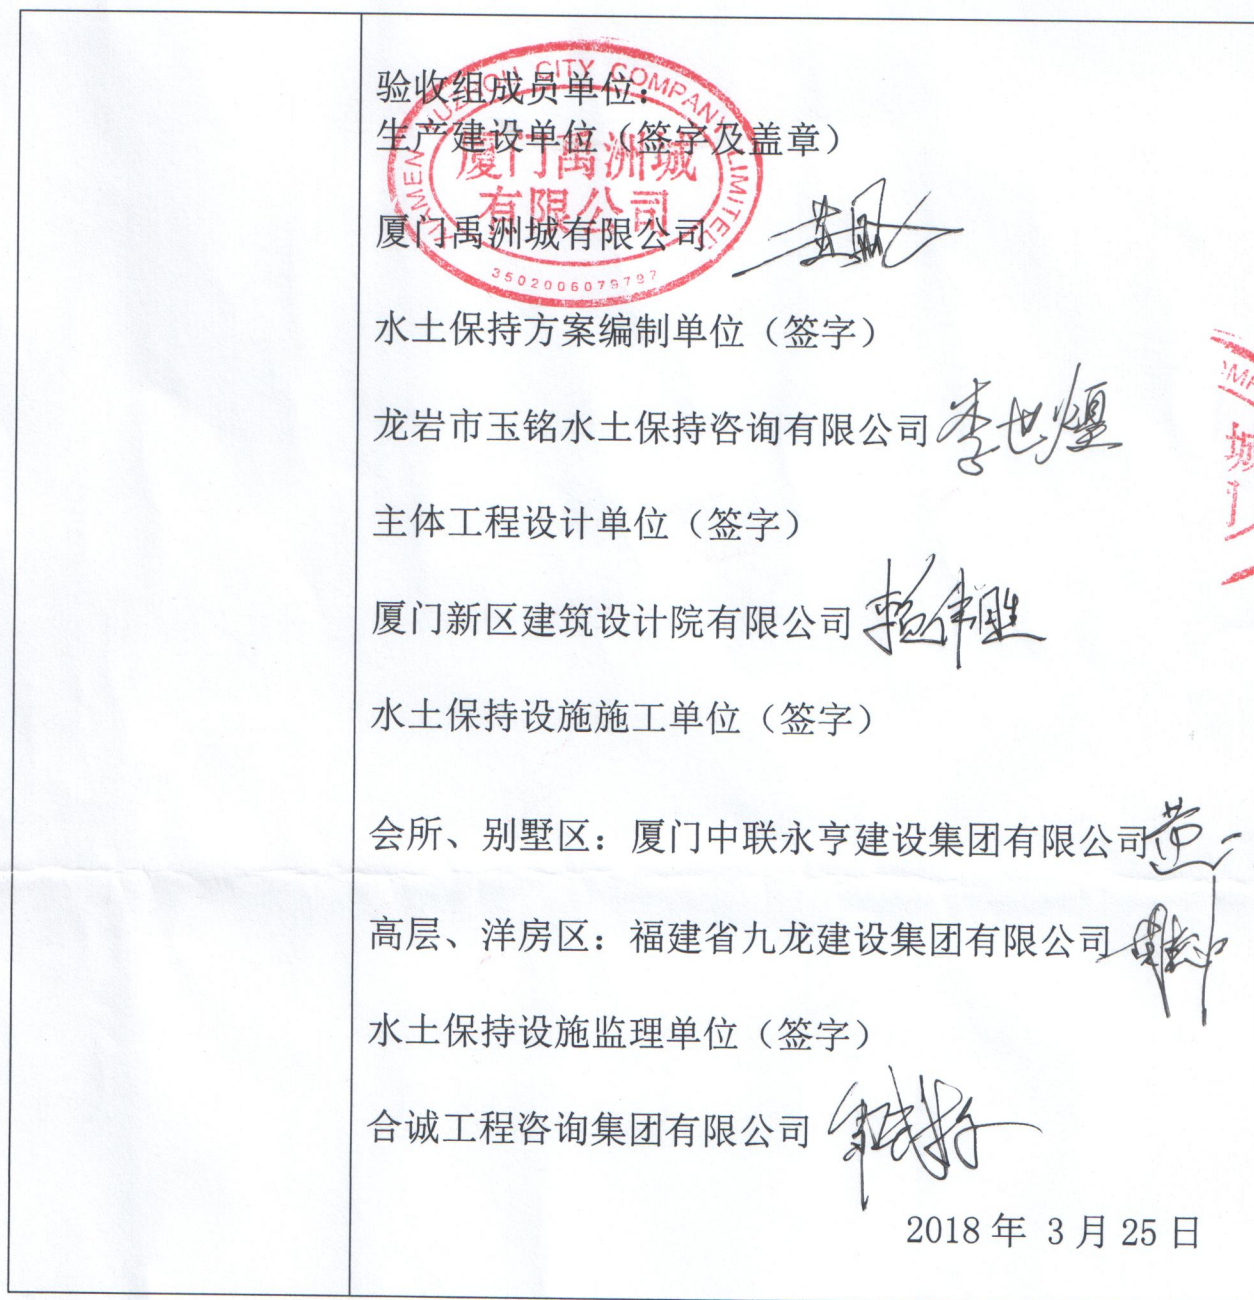 验收组成员单位：
生产建设单位（签字及盖章）
XIAMEN YUZHOU CITY COMPANY LIMITED
厦门禹洲城
有限公司
3502006079797
厦门禹洲城有限公司
水土保持方案编制单位（签字）
龙岩市玉铭水土保持咨询有限公司 李世煌
主体工程设计单位（签字）
厦门新区建筑设计院有限公司
水土保持设施施工单位（签字）
会所、别墅区：厦门中联永亨建设集团有限公司
高层、洋房区：福建省九龙建设集团有限公司
水土保持设施监理单位（签字）
合诚工程咨询集团有限公司
2018 年 3 月 25 日
城